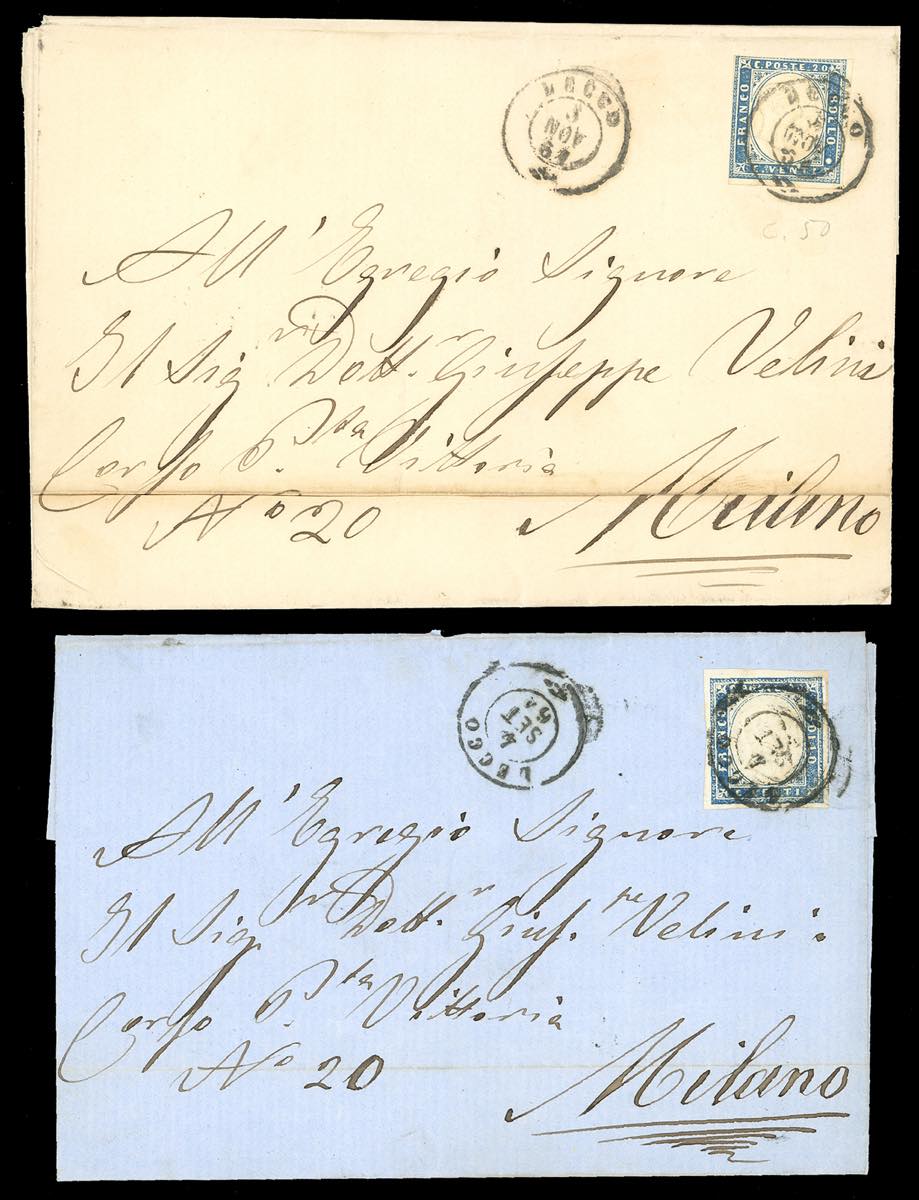 LECCO
C. POSTE 20
FRANCO
BOLLO
C. VENTI
c. 50
All' Egregio Signore
Il Sig.r Dott.r Giuseppe Velini
Corso P.ta Vittoria
No 20
Milano
LECCO
4
SET
61
FRANCO
BOLLO
C. VENTI
All' Egregio Signore
Il Sig.r Dott.r Gius.pe Velini.
Corso P.ta Vittoria
No 20
Milano